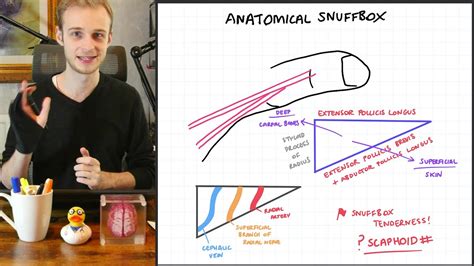 ANATOMICAL SNUFFBOX
DEEP
CARPAL BONES
EXTENSOR POLLICIS LONGUS
STYLOID
PROCESS
OF
RADIUS
EXTENSOR POLLICIS BREVIS
+ ABDUCTOR POLLICIS LONGUS
SUPERFICIAL
SKIN
RADIAL
ARTERY
SUPERFICIAL
BRANCH OF
RADIAL NERVE
CEPHALIC
VEIN
SNUFFBOX
TENDERNESS!
? SCAPHOID #